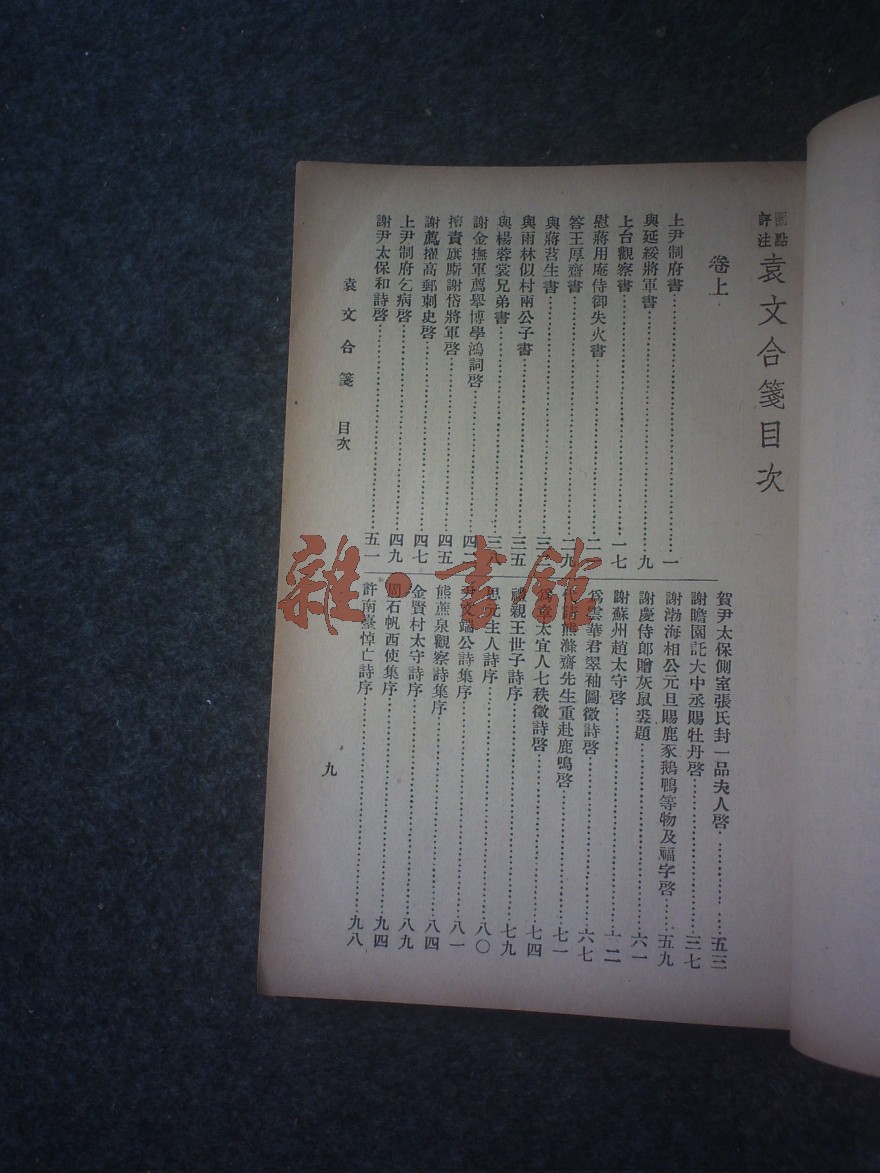 圈點
評注
袁文合箋目次
卷上
上尹制府書 一
與延綏將軍書 九
上台觀察書 一七
慰蔣用庵侍御失火書 二一
答王厚齋書 二九
與蔣苕生書
與雨林似村兩公子書 三五
與楊蓉裳兄弟書 三八
謝金撫軍薦舉博學鴻詞啓 四二
擅責旗厮謝岱將軍啓 四五
謝薦擢高郵刺史啓 四七
上尹制府乞病啓 四九
謝尹太保和詩啓 五一
賀尹太保側室張氏封一品夫人啓 五三
謝瞻園託大中丞賜牡丹啓 三七
謝渤海相公元旦賜鹿豕鵝鴨等物及福字啓 五九
謝慶侍郎贈灰鼠裘題 六一
謝蘇州趙太守啓
爲雲華君翠袖圖徵詩啓 六七
代請熊滌齋先生重赴鹿鳴啓 七一
爲章太宜人七秩徵詩啓 七四
禮親王世子詩序 七九
思元主人詩序 八〇
尹文端公詩集序 八一
熊蔗泉觀察詩集序 八四
金賢村太守詩序 八九
周石帆西使集序 九四
許南臺悼亡詩序 九八
袁文合箋 目次
九
雜·書館